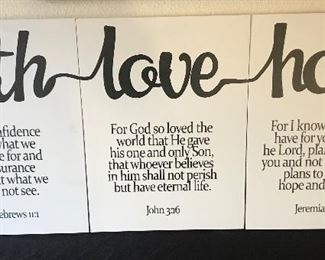 th
nfidence
what we
e for and
surance
t what we
not see.
ebrews 11:1
love
For God so loved the
world that He gave
his one and only Son,
that whoever believes
in him shall not perish
but have eternal life.
John 3:16
ho
For I know
have for yo
he Lord, plan
you and not
plans to
hope and
Jeremia